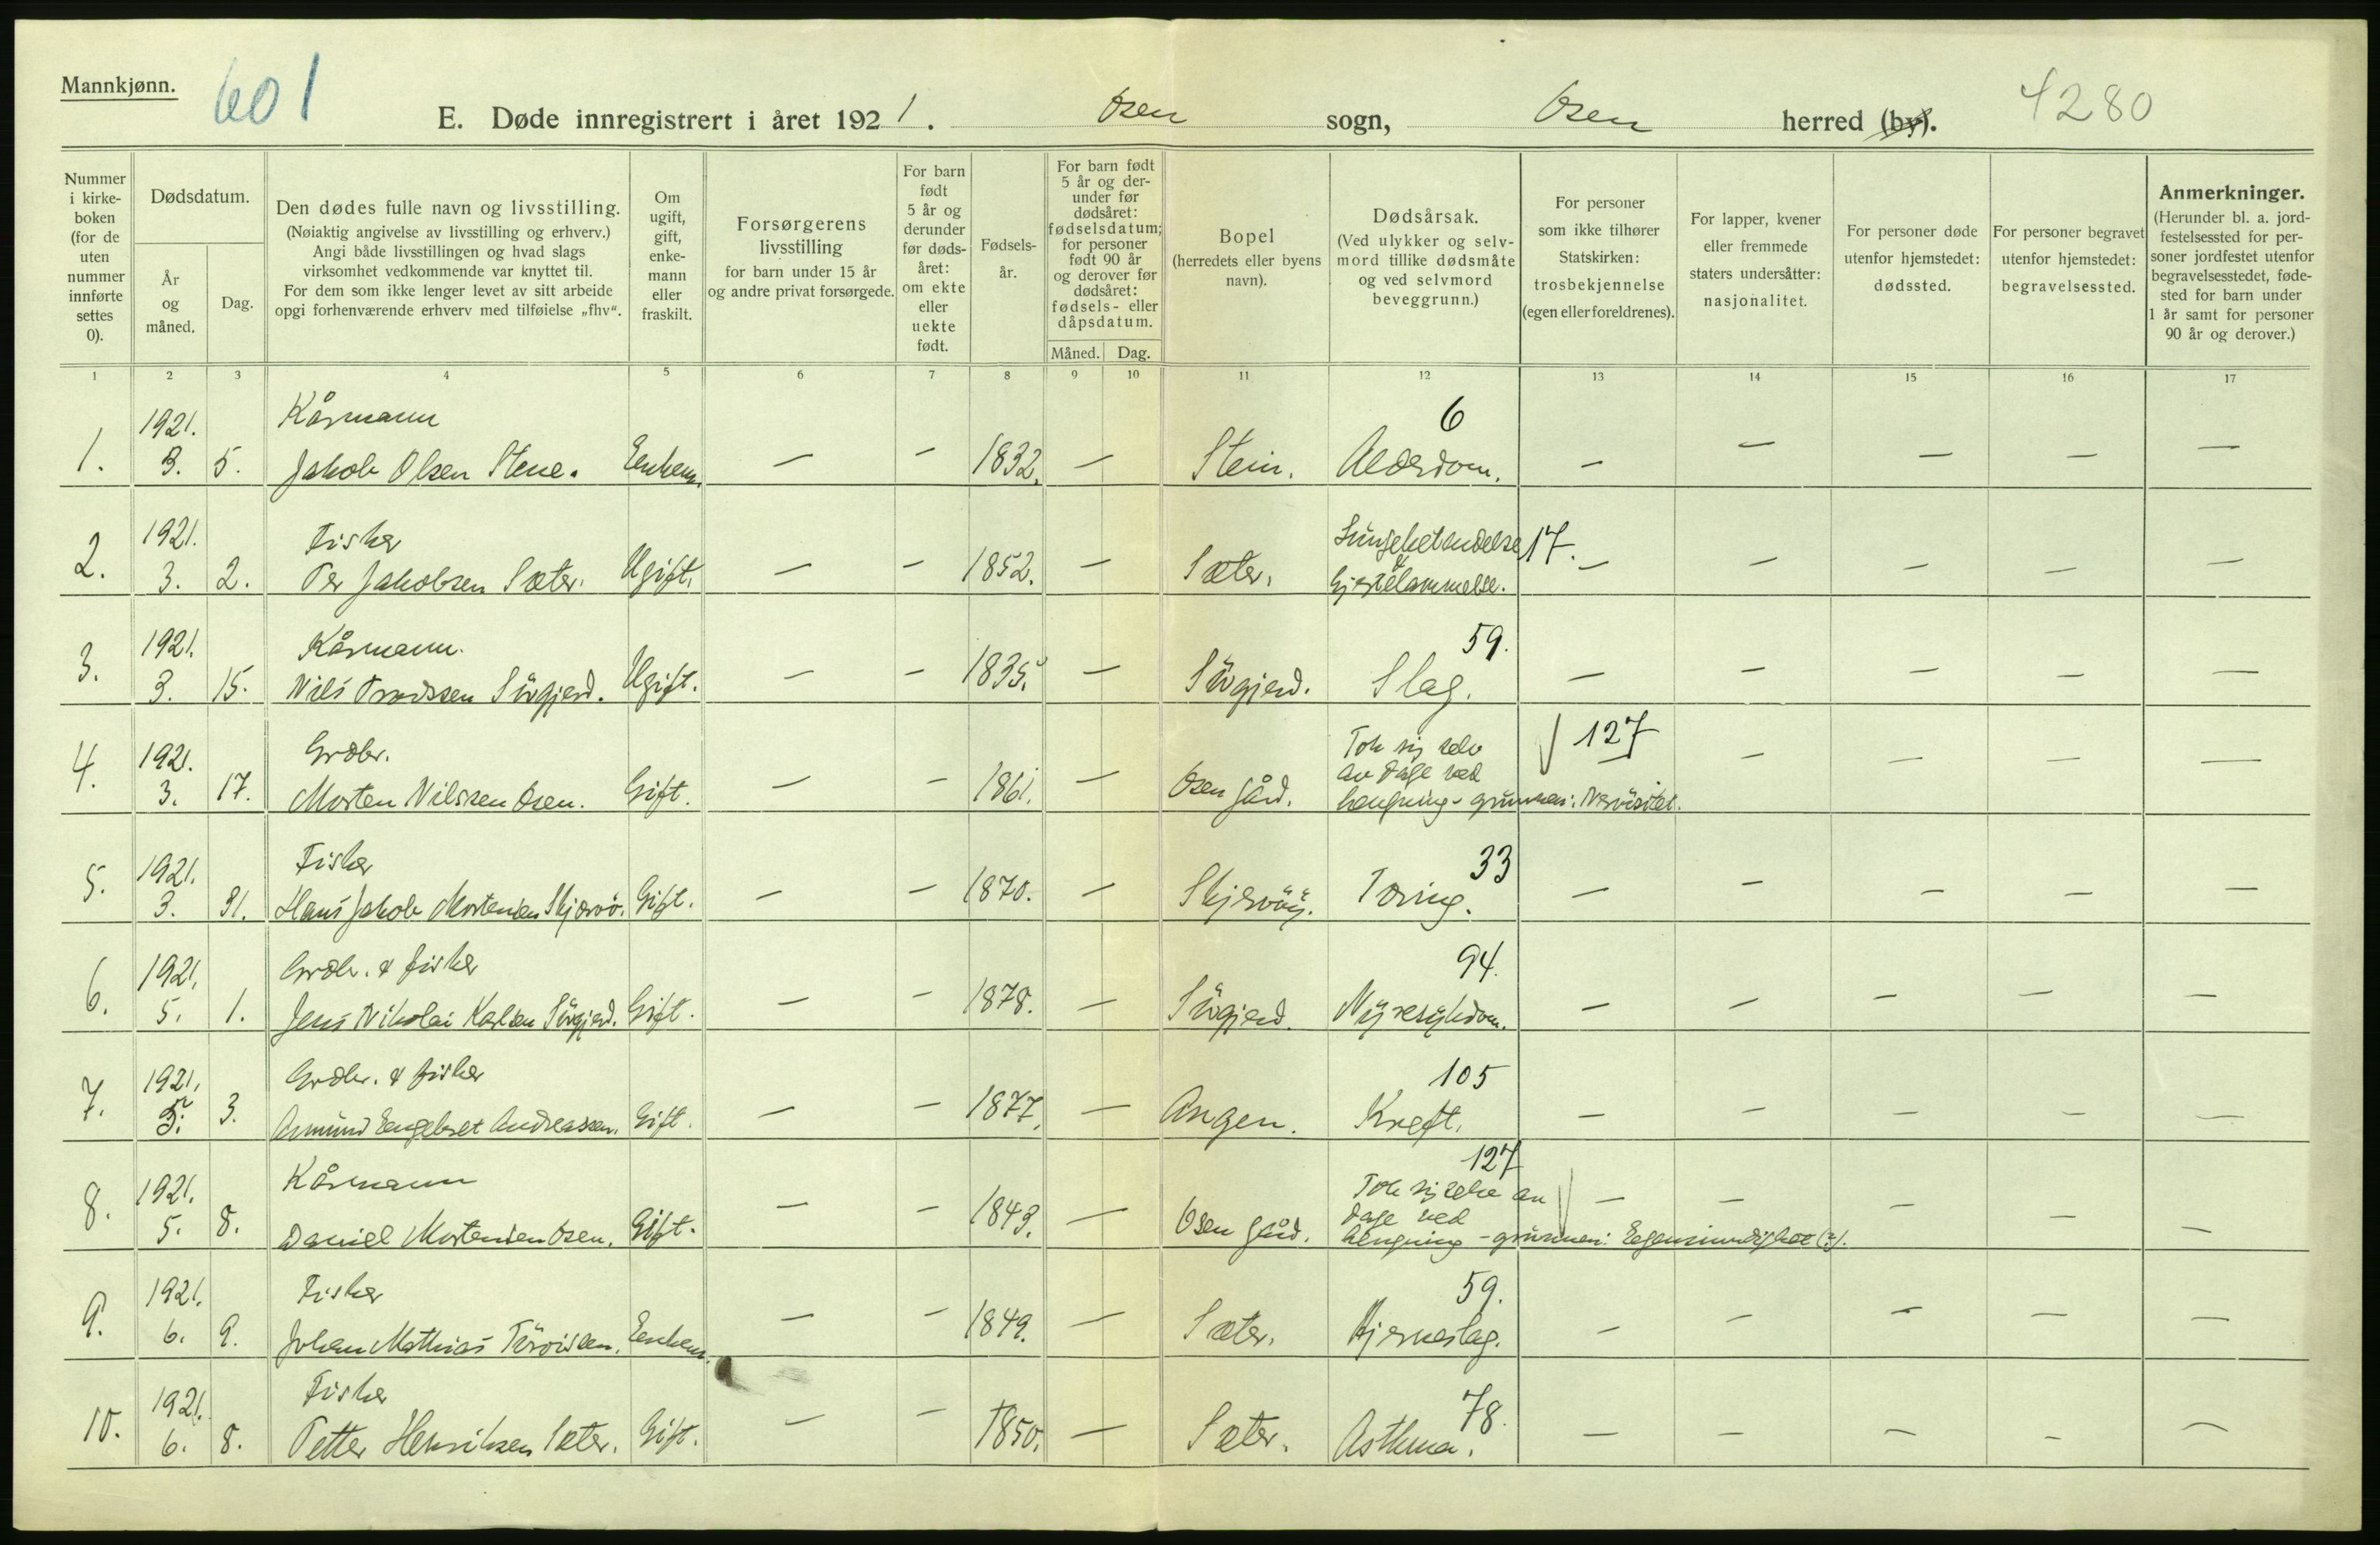 Mannkjønn.
601
E. Døde innregistrert i året 1921. Osen sogn, Osen herred (by).
4280
Nummer i kirke-boken (for de uten nummer innførte settes 0).
Dødsdatum.
År og måned.
Dag.
Den dødes fulle navn og livsstilling.
(Nøiaktig angivelse av livsstilling og erhverv.)
Angi både livsstillingen og hvad slags
virksomhet vedkommende var knyttet til.
For dem som ikke lenger levet av sitt arbeide
opgi forhenværende erhverv med tilføielse „fhv“.
Om ugift, gift, enke-mann eller fraskilt.
Forsørgerens
livsstilling
for barn under 15 år
og andre privat forsørgede.
For barn født 5 år og derunder før døds-året: om ekte eller uekte født.
Fødsels-år.
For barn født 5 år og der-under før dødsåret: fødselsdatum; for personer født 90 år og derover før dødsåret: fødsels- eller dåpsdatum.
Måned. Dag.
Bopel
(herredets eller byens
navn).
Dødsårsak.
(Ved ulykker og selv-
mord tillike dødsmåte
og ved selvmord
beveggrunn.)
For personer
som ikke tilhører
Statskirken:
trosbekjennelse
(egen eller foreldrenes).
For lapper, kvener
eller fremmede
staters undersåtter:
nasjonalitet.
For personer døde
utenfor hjemstedet:
dødssted.
For personer begravet
utenfor hjemstedet:
begravelsessted.
Anmerkninger.
(Herunder bl. a. jord-
festelsessted for per-
soner jordfestet utenfor
begravelsesstedet, føde-
sted for barn under
1 år samt for personer
90 år og derover.)
1 2 3 4 5 6 7 8 9 10 11 12 13 14 15 16 17
1921. Kårmann 6
1. 3. 5. Jakob Olsen Stene. Enkem. — — 1832. — Stein. Alderdom. — — — — —
1921. Fisker Lungebetendelse 17.
2. 3. 2. Per Jakobsen Sæter. Ugift. — — 1852. — Sæter. & Hjertelammelse. — — — — —
1921. Kårmann. 59.
3. 3. 15. Nils Sövgjerd. Ugift. — — 1835. — Sövgjerd. Slag. — — — — —
1921. Grdbr. Tok sig selv 127
av dage ved
4. 3. 17. Morten Nilssen Osen. Gift. — — 1861. — Osen gård. hengning - grunnen: Nervösitet. — — — — —
1921. Fisker 33
5. 3. 31. Hans Jakob Mortensen Skjærvö. Gift. — — 1870. — Skjervöy. Tæring. — — — — —
1921. Grdbr. & fisker 94.
6. 5. 1. Jens Nikolai Karlsen Sövgjerd. Gift. — — 1878. — Sövgjerd. Nyresykdom. — — — — —
1921. Grdbr. & fisker 105
7. 5. 3. Amund Engelbret Andreassen. Gift. — — 1877. — Angen. Kreft. — — — — —
1921. Kårmann 127
Tok sig selv av
dage ved
8. 5. 8. Daniel Mortensen Osen. Gift. — — 1843. — Osen gård. hengning - grunnen: Egensindighet (?). — — — — —
1921. Fisker 59.
9. 6. 9. Johan Mathias Enkem. — — 1849. — Sæter. Hjerneslag. — — — — —
1921. Fisker 78.
10. 6. 8. Petter Henriksen Sæter. Gift. — — 1850. — Sæter. Asthma. — — — — —